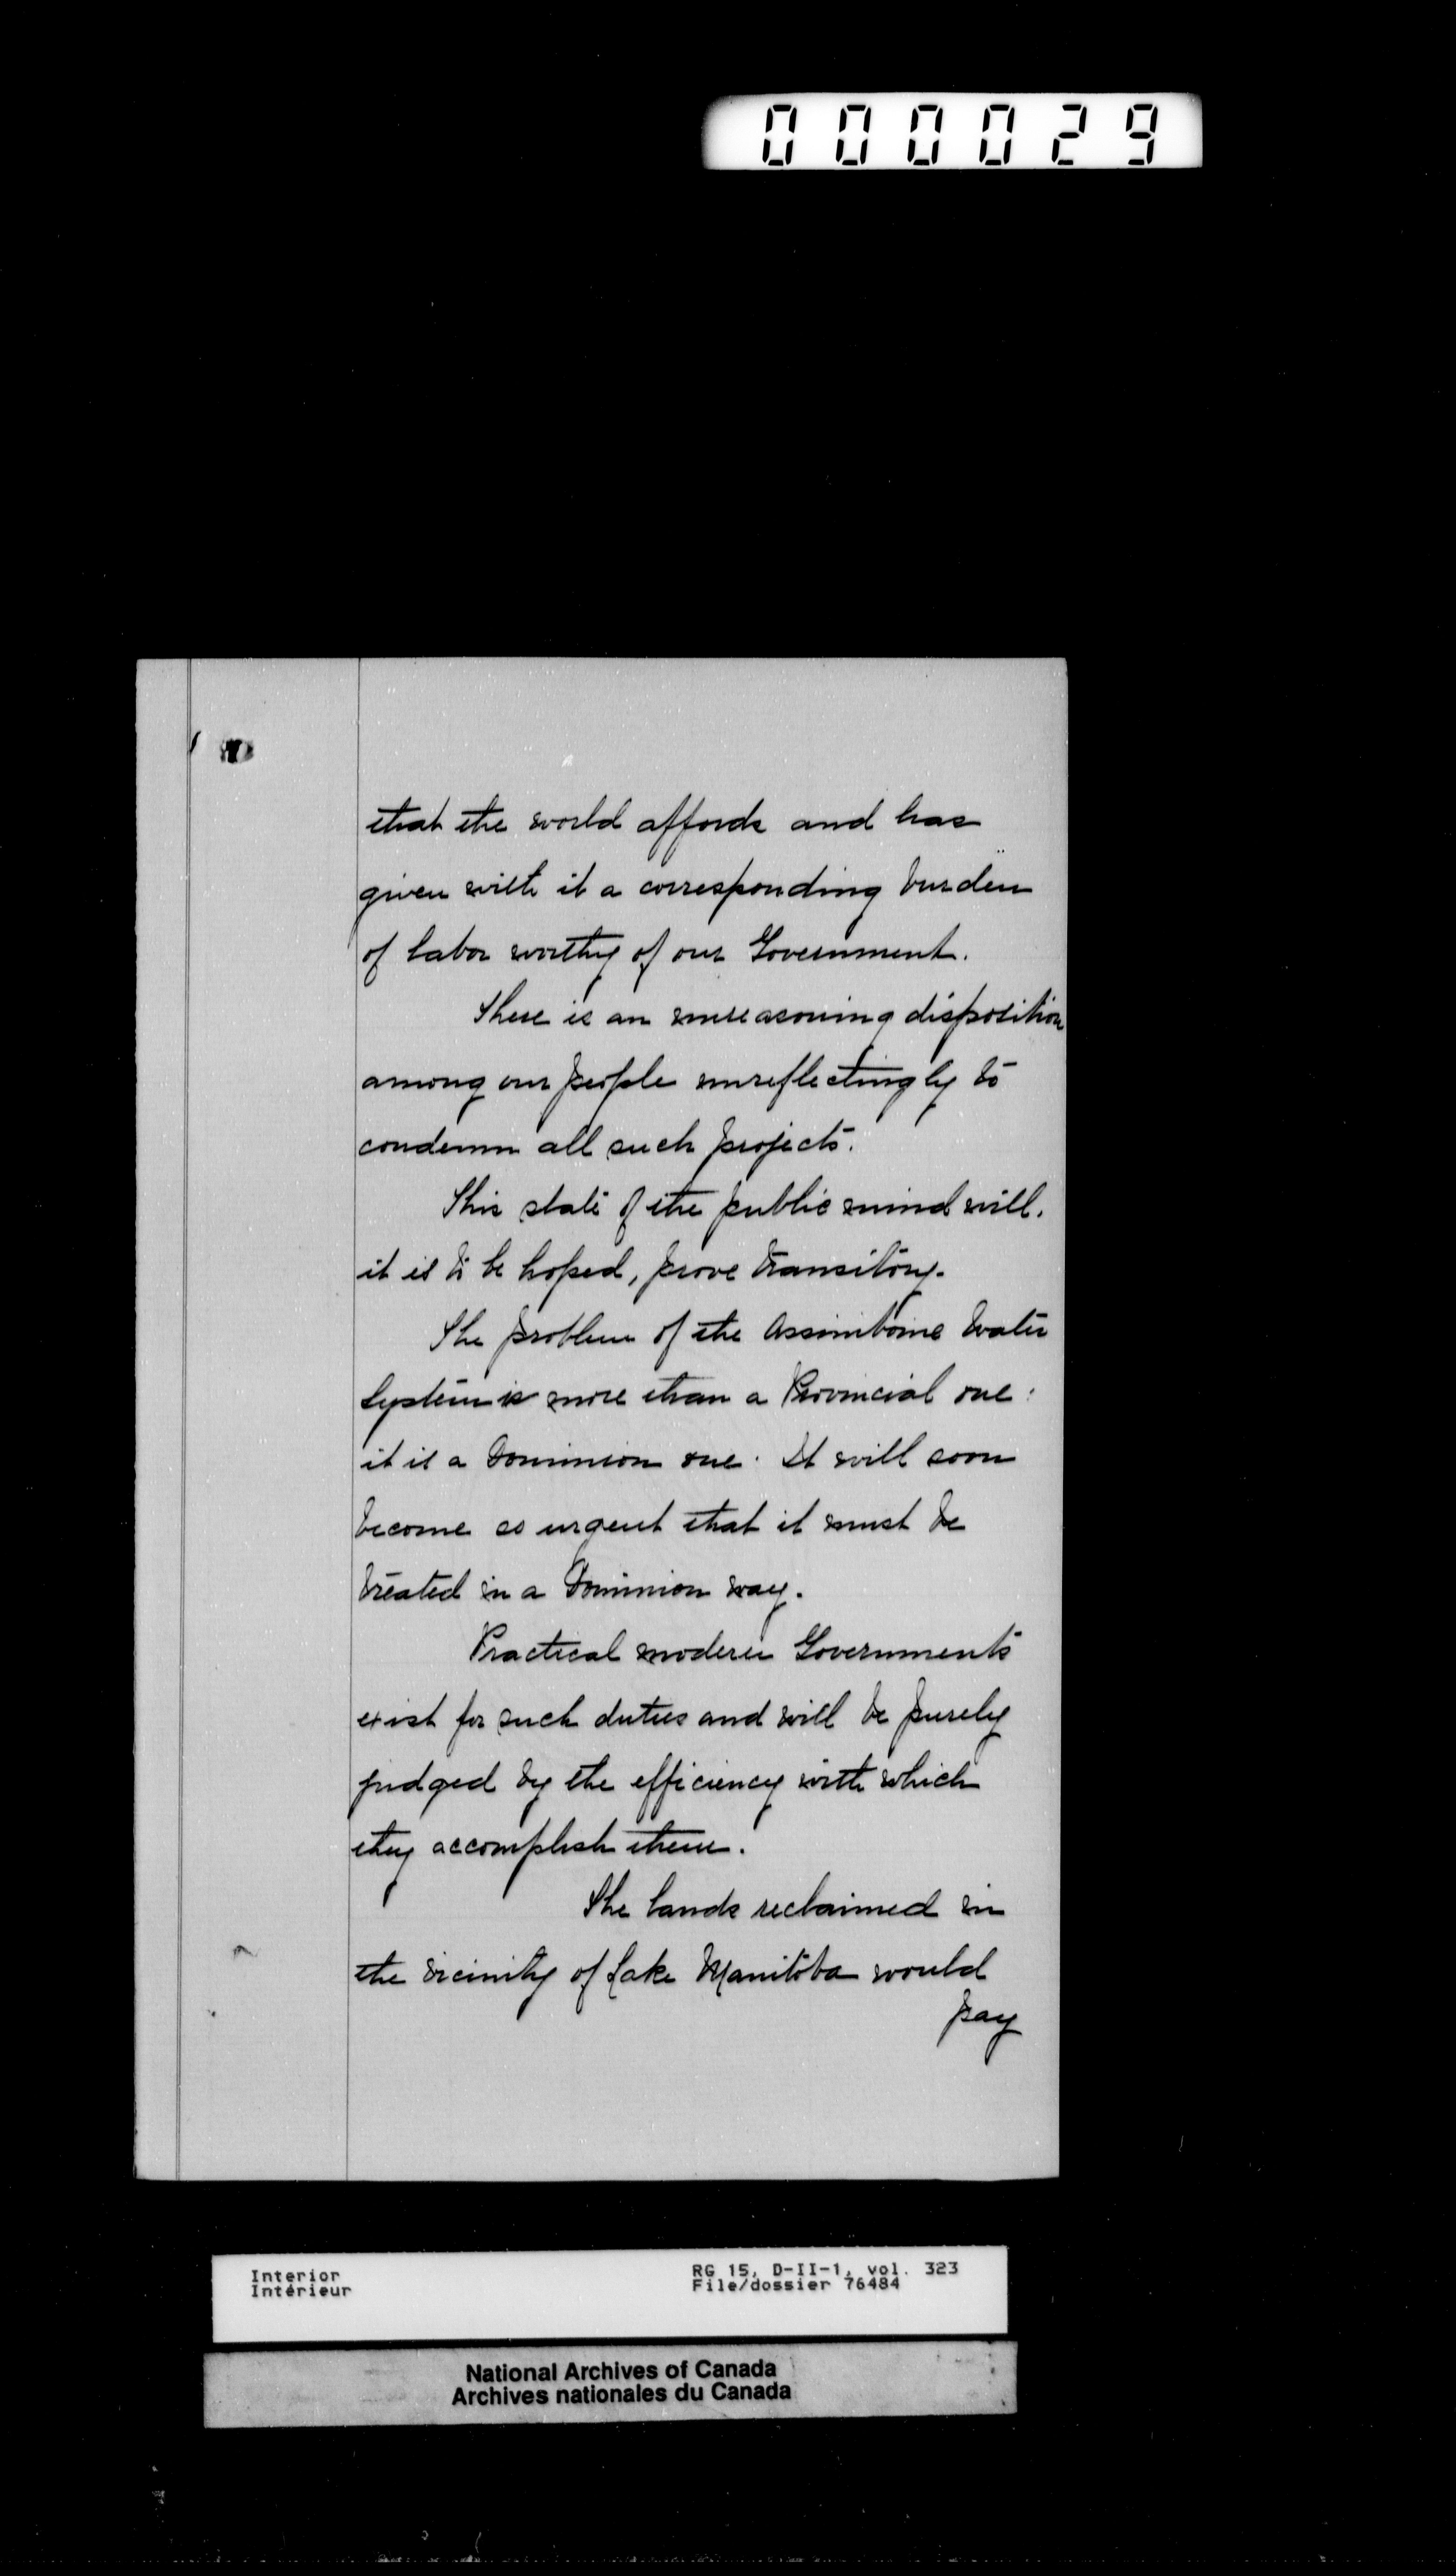 000029
that the world affords and has
given with it a corresponding burden
of labor worthy of our Government.
There is an unreasoning disposition
among our people unreflectingly to
condemn all such projects.
This state of the public mind will,
it is to be hoped, prove transitory.
The problem of the Assiniboine Water
System is more than a Provincial one:
it is a Dominion one. It will soon
become so urgent that it must be
treated in a Dominion way.
Practical modern Governments
exist for such duties and will be purely
judged by the efficiency with which
they accomplish them.
The lands reclaimed in
the vicinity of Lake Manitoba would
pay
Interior
Intérieur
RG 15, D-II-1, vol. 323
File/dossier 76484
National Archives of Canada
Archives nationales du Canada